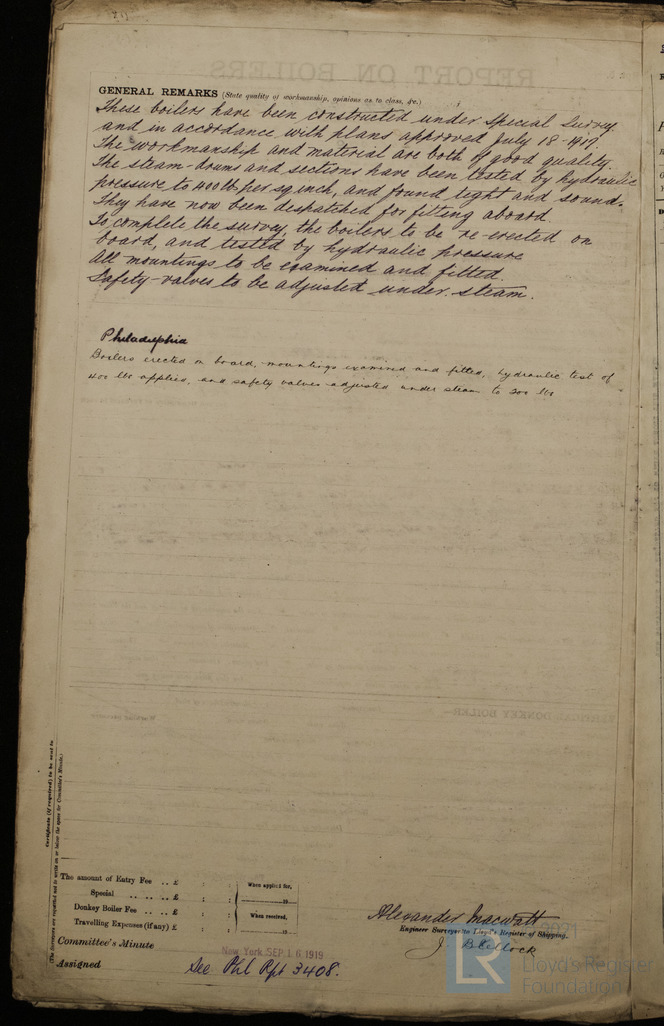 GENERAL REMARKS (State quality of workmanship, opinions as to class, &c.)
These boilers have been constructed under Special Survey
and in accordance with plans approved July 18-1917.
The workmanship and material are both of good quality.
The steam-drums and sections have been tested by hydraulic
pressure to 400 lb per sq inch, and found tight and sound.
They have now been despatched for fitting aboard
To complete the survey, the boilers to be re-erected on
board, and tested by hydraulic pressure
All mountings to be examined and fitted.
Safety-valves to be adjusted under steam.
Philadelphia
Boilers erected on board, mountings examined and fitted, hydraulic test of
400 lbs applied, and safety valves adjusted under steam to 200 lbs
Certificate (if required) to be sent to
(The Surveyors are requested not to write on or below the space for Committee's Minute.)
The amount of Entry Fee .. £ : :
Special .. .. .. £ : :
Donkey Boiler Fee .. .. £ : :
Travelling Expenses (if any) £ : :
When applied for,
19
When received,
19
Alexander Macwatt
Engineer Surveyor to Lloyd's Register of Shipping.
Committee's Minute
New York SEP 16 1919
Assigned
See Phl Rpt 3408.
LR
Lloyd's Register
Foundation
REPORT ON BOILERS